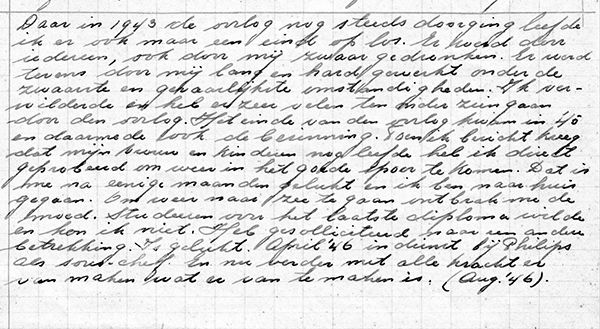 Daar in 1943 de oorlog nog steeds doorging leefde
ik er ook maar een eind op los. Er werd door
iedereen, ook door mij zwaar gedronken. Er werd
tevens door mij lang en hard gewerkt onder de
zwaarste en gevaarlijkste omstandigheden. Ik ver-
wilderde en heb er zeer velen ten onder zien gaan
door den oorlog. Het einde van den oorlog kwam in 45
en daarmede ook de bezinning. Toen ik bericht kreeg
dat mijn vrouw en kinderen nog leefde heb ik direct
geprobeerd om weer in het goede spoor te komen. Dat is
me na eenige maanden gelukt en ik ben naar huis
gegaan. Om weer naar zee te gaan ontbrak me de
moed. Studeeren voor het laatste diploma wilde
en kon ik niet. Heb gesolliciteerd naar een andere
betrekking. Is gelukt. April '46 in dienst bij Philips
als sous-chef. En nu verder met alle kracht er
van maken wat er van te maken is. (Aug. '46).